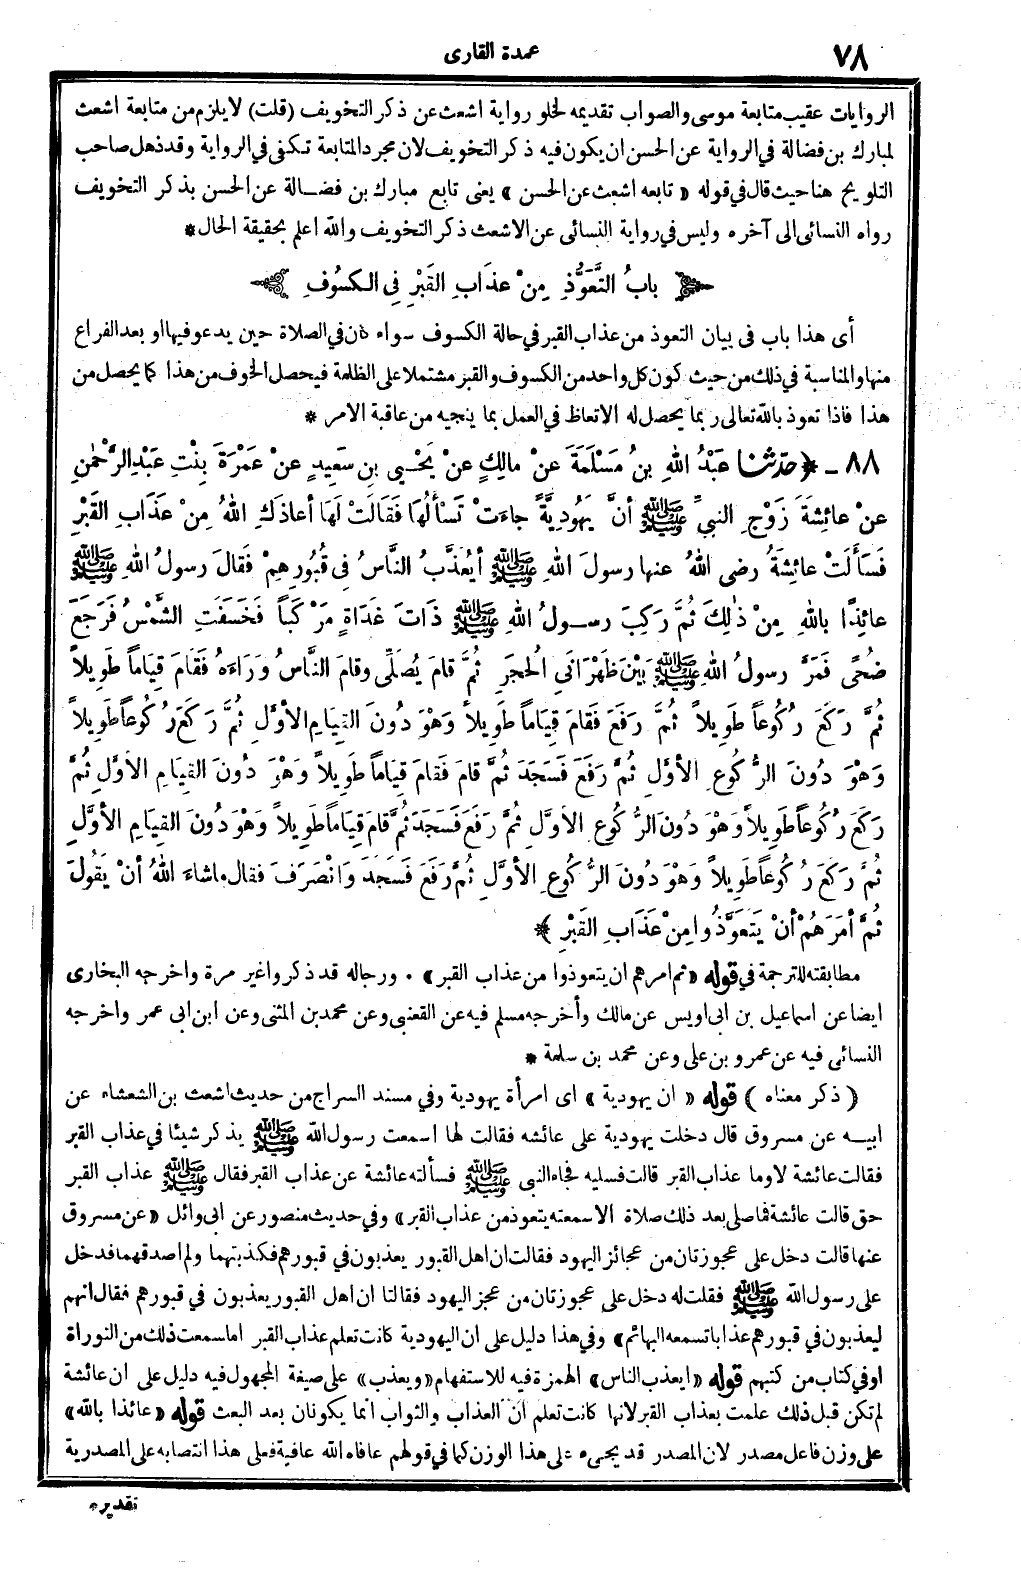 ٧٨
عمدة القارى
الروايات عقيب متابعة موسى والصواب تقديمه لخلو رواية اشعث عن ذكر التخويف (قلت) لا يلزم من متابعة اشعث
لمبارك بن فضالة في الرواية عن الحسن ان يكون فيه ذكر التخويف لان مجرد المتابعة تكفى في الرواية وقد ذهل صاحب
التلويح هنا حيث قال في قوله « تابعه اشعث عن الحسن » يعنى تابع مبارك بن فضالة عن الحسن بذكر التخويف
رواه النسائى الى آخره وليس في رواية النسائى عن الاشعث ذكر التخويف والله اعلم بحقيقة الحال *
﴿ بابُ التَّعَوُّذِ مِنْ عذَابِ القَبْرِ فى الكسُوفِ ﴾
أى هذا باب فى بيان التعوذ من عذاب القبر في حالة الكسوف سواء كان في الصلاة حين يدعو فيها او بعد الفراغ
منها والمناسبة في ذلك من حيث كون كل واحد من الكسوف والقبر مشتملا على الظلمة فيحصل الخوف من هذا كما يحصل من
هذا فاذا تعوذ بالله تعالى ربما يحصل له الاتعاظ في العمل بما ينجيه من عاقبة الامر *
٨٨ - ﴿ حدثنا عَبْدُ اللهِ بنُ مَسْلَمَةَ عنْ مالِكٍ عنْ يَحْيى بنِ سَعِيدٍ عنْ عَمْرَةَ بِنْتِ عَبْدِ الرَّحْمٰنِ
عنْ عائِشَةَ زَوْجِ النبيِّ ﷺ أنَّ يَهُودِيَّةً جاءَتْ تَسْألُهَا فَقَالَتْ لَهَا أعاذَكِ اللهُ مِنْ عَذَابِ القَبْرِ
فَسَألَتْ عائِشَةُ رضى اللهُ عنها رسولَ اللهِ ﷺ أيُعَذَّبُ النَّاسُ فى قُبُورِهِمْ فَقالَ رسولُ اللهِ ﷺ
عائِذًا باللهِ مِنْ ذٰلِكَ ثُمَّ رَكِبَ رسولُ اللهِ ﷺ ذَاتَ غَدَاةٍ مَرْكَباً فَخَسَفَتِ الشَّمْسُ فَرَجَعَ
ضُحًى فَمَرَّ رسولُ اللهِ ﷺ بَيْنَ ظَهْرَانَيِ الْحُجَرِ ثُمَّ قامَ يُصَلِّى وقامَ النَّاسُ وَرَاءَهُ فَقَامَ قِيَاماً طَوِيلاً
ثُمَّ رَكَعَ رُكُوعاً طَوِيلاً ثُمَّ رَفَعَ فَقَامَ قِيَاماً طَوِيلاً وَهْوَ دُونَ القِيَامِ الأوَّلِ ثُمَّ رَكَعَ رُكُوعاً طَوِيلاً
وَهْوَ دُونَ الرُّكُوعِ الأوَّلِ ثُمَّ رَفَعَ فَسَجَدَ ثُمَّ قامَ فَقَامَ قِيَاماً طَوِيلاً وَهْوَ دُونَ القِيَامِ الأوَّلِ ثُمَّ
رَكَعَ رُكُوعاً طَوِيلاً وَهْوَ دُونَ الرُّكُوعِ الأوَّلِ ثُمَّ رَفَعَ فَسَجَدَ ثُمَّ قامَ قِيَاماً طَوِيلاً وَهْوَ دُونَ القِيَامِ الأوَّلِ
ثُمَّ رَكَعَ رُكُوعاً طَوِيلاً وَهْوَ دُونَ الرُّكُوعِ الأوَّلِ ثُمَّ رَفَعَ فَسَجَدَ وَانْصَرَفَ فقال ماشاءَ اللهُ أنْ يَقُولَ
ثُمَّ أمَرَهُمْ أنْ يَتَعَوَّذُوا مِنْ عَذَابِ القَبْرِ ﴾ *
مطابقته للترجمة في قوله «ثم امرهم ان يتعوذوا من عذاب القبر» . ورجاله قد ذكروا غير مرة واخرجه البخارى
ايضا عن اسماعيل بن ابى اويس عن مالك وأخرجه مسلم فيه عن القعنبى وعن محمد بن المثنى وعن ابن ابى عمر واخرجه
النسائى فيه عن عمرو بن على وعن محمد بن سلمة *
( ذكر معناه ) قوله « ان يهودية » اى امرأة يهودية وفي مسند السراج من حديث اشعث بن الشعثاء عن
ابيه عن مسروق قال دخلت يهودية على عائشه فقالت لها اسمعت رسول الله ﷺ يذكر شيئا في عذاب القبر
فقالت عائشة لا وما عذاب القبر قالت فسليه فجاء النبى ﷺ فسألته عائشة عن عذاب القبر فقال ﷺ عذاب القبر
حق قالت عائشة فما صلى بعد ذلك صلاة الا سمعته يتعوذ من عذاب القبر» وفي حديث منصور عن ابى وائل «عن مسروق
عنها قالت دخل على عجوزتان من عجائز اليهود فقالت ان اهل القبور يعذبون في قبورهم فكذبتهما ولم اصدقهما فدخل
على رسول الله ﷺ فقلت له دخل على عجوزتان من عجز اليهود فقالتا ان اهل القبور يعذبون في قبورهم فقال انهم
ليعذبون في قبورهم عذابا تسمعه البهائم» وفي هذا دليل على ان اليهودية كانت تعلم عذاب القبر اما سمعت ذلك من التوراة
او في كتاب من كتبهم قوله «ايعذب الناس» الهمزة فيه للاستفهام «ويعذب» على صيغة المجهول فيه دليل على ان عائشة
لم تكن قبل ذلك علمت بعذاب القبر لانها كانت تعلم ان العذاب والثواب انما يكونان بعد البعث قوله «عائذا بالله»
على وزن فاعل مصدر لان المصدر قد يجىء على هذا الوزن كما في قولهم عافاه الله عافية فعلى هذا انتصابه على المصدرية
تقديره